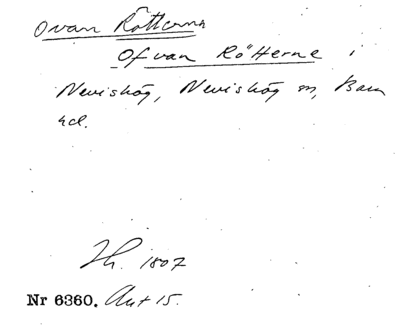 Ovan Rötterna
Ofvan Rötterne i
Nevishög, Nevishög sn, Bara
hd.
Th. 1807
Nr 6360. Aut 15.